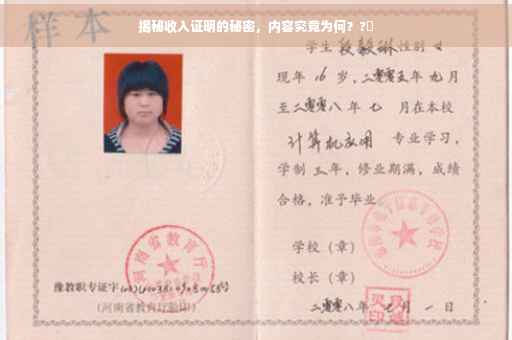 揭秘收入证明的秘密，内容究竟为何？?
样本
学生段毅琳性别女
现年16岁，二零零五年九月
至二零零八年七月在本校
计算机应用专业学习，
学制三年，修业期满，成绩
合格，准予毕业
学校（章）
校长（章）
二零零八年七月一日
河南省教育厅
豫教职专证字
(河南省教育厅验印)